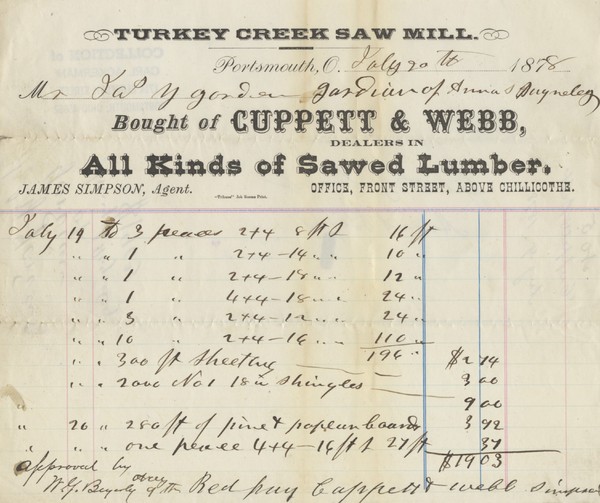 TURKEY CREEK SAW MILL.
Portsmouth, O. July 20th 1878
Mr Jas Y gorden gardian of Annas
Bought of CUPPETT & WEBB,
DEALERS IN
All Kinds of Sawed Lumber.
JAMES SIMPSON, Agent. "Tribune" Job Rooms Print. OFFICE, FRONT STREET, ABOVE CHILLICOTHE.
July 19 to 3 peaces 2+4 8 ft 16 ft
" " 1 " 2+4-14 " " 10 "
" " 1 " 2+4-18 " " 12 "
" " 1 " 4+4-18 " " 24 "
" " 3 " 2+4-12 " " 24 "
" " 10 " 2+4-16 " " 110 "
196 " $2 14
" " 300 ft Sheeting 3 00
" " 2000 No 1 18 in Shingles 9 00
" 20 " 280 ft of pine & poplun boards 3 92
" " " one peace 4+4-16 ft 27 ft 37
$19 03
approval by
of the Red pay Cuppett & Webb Simpson